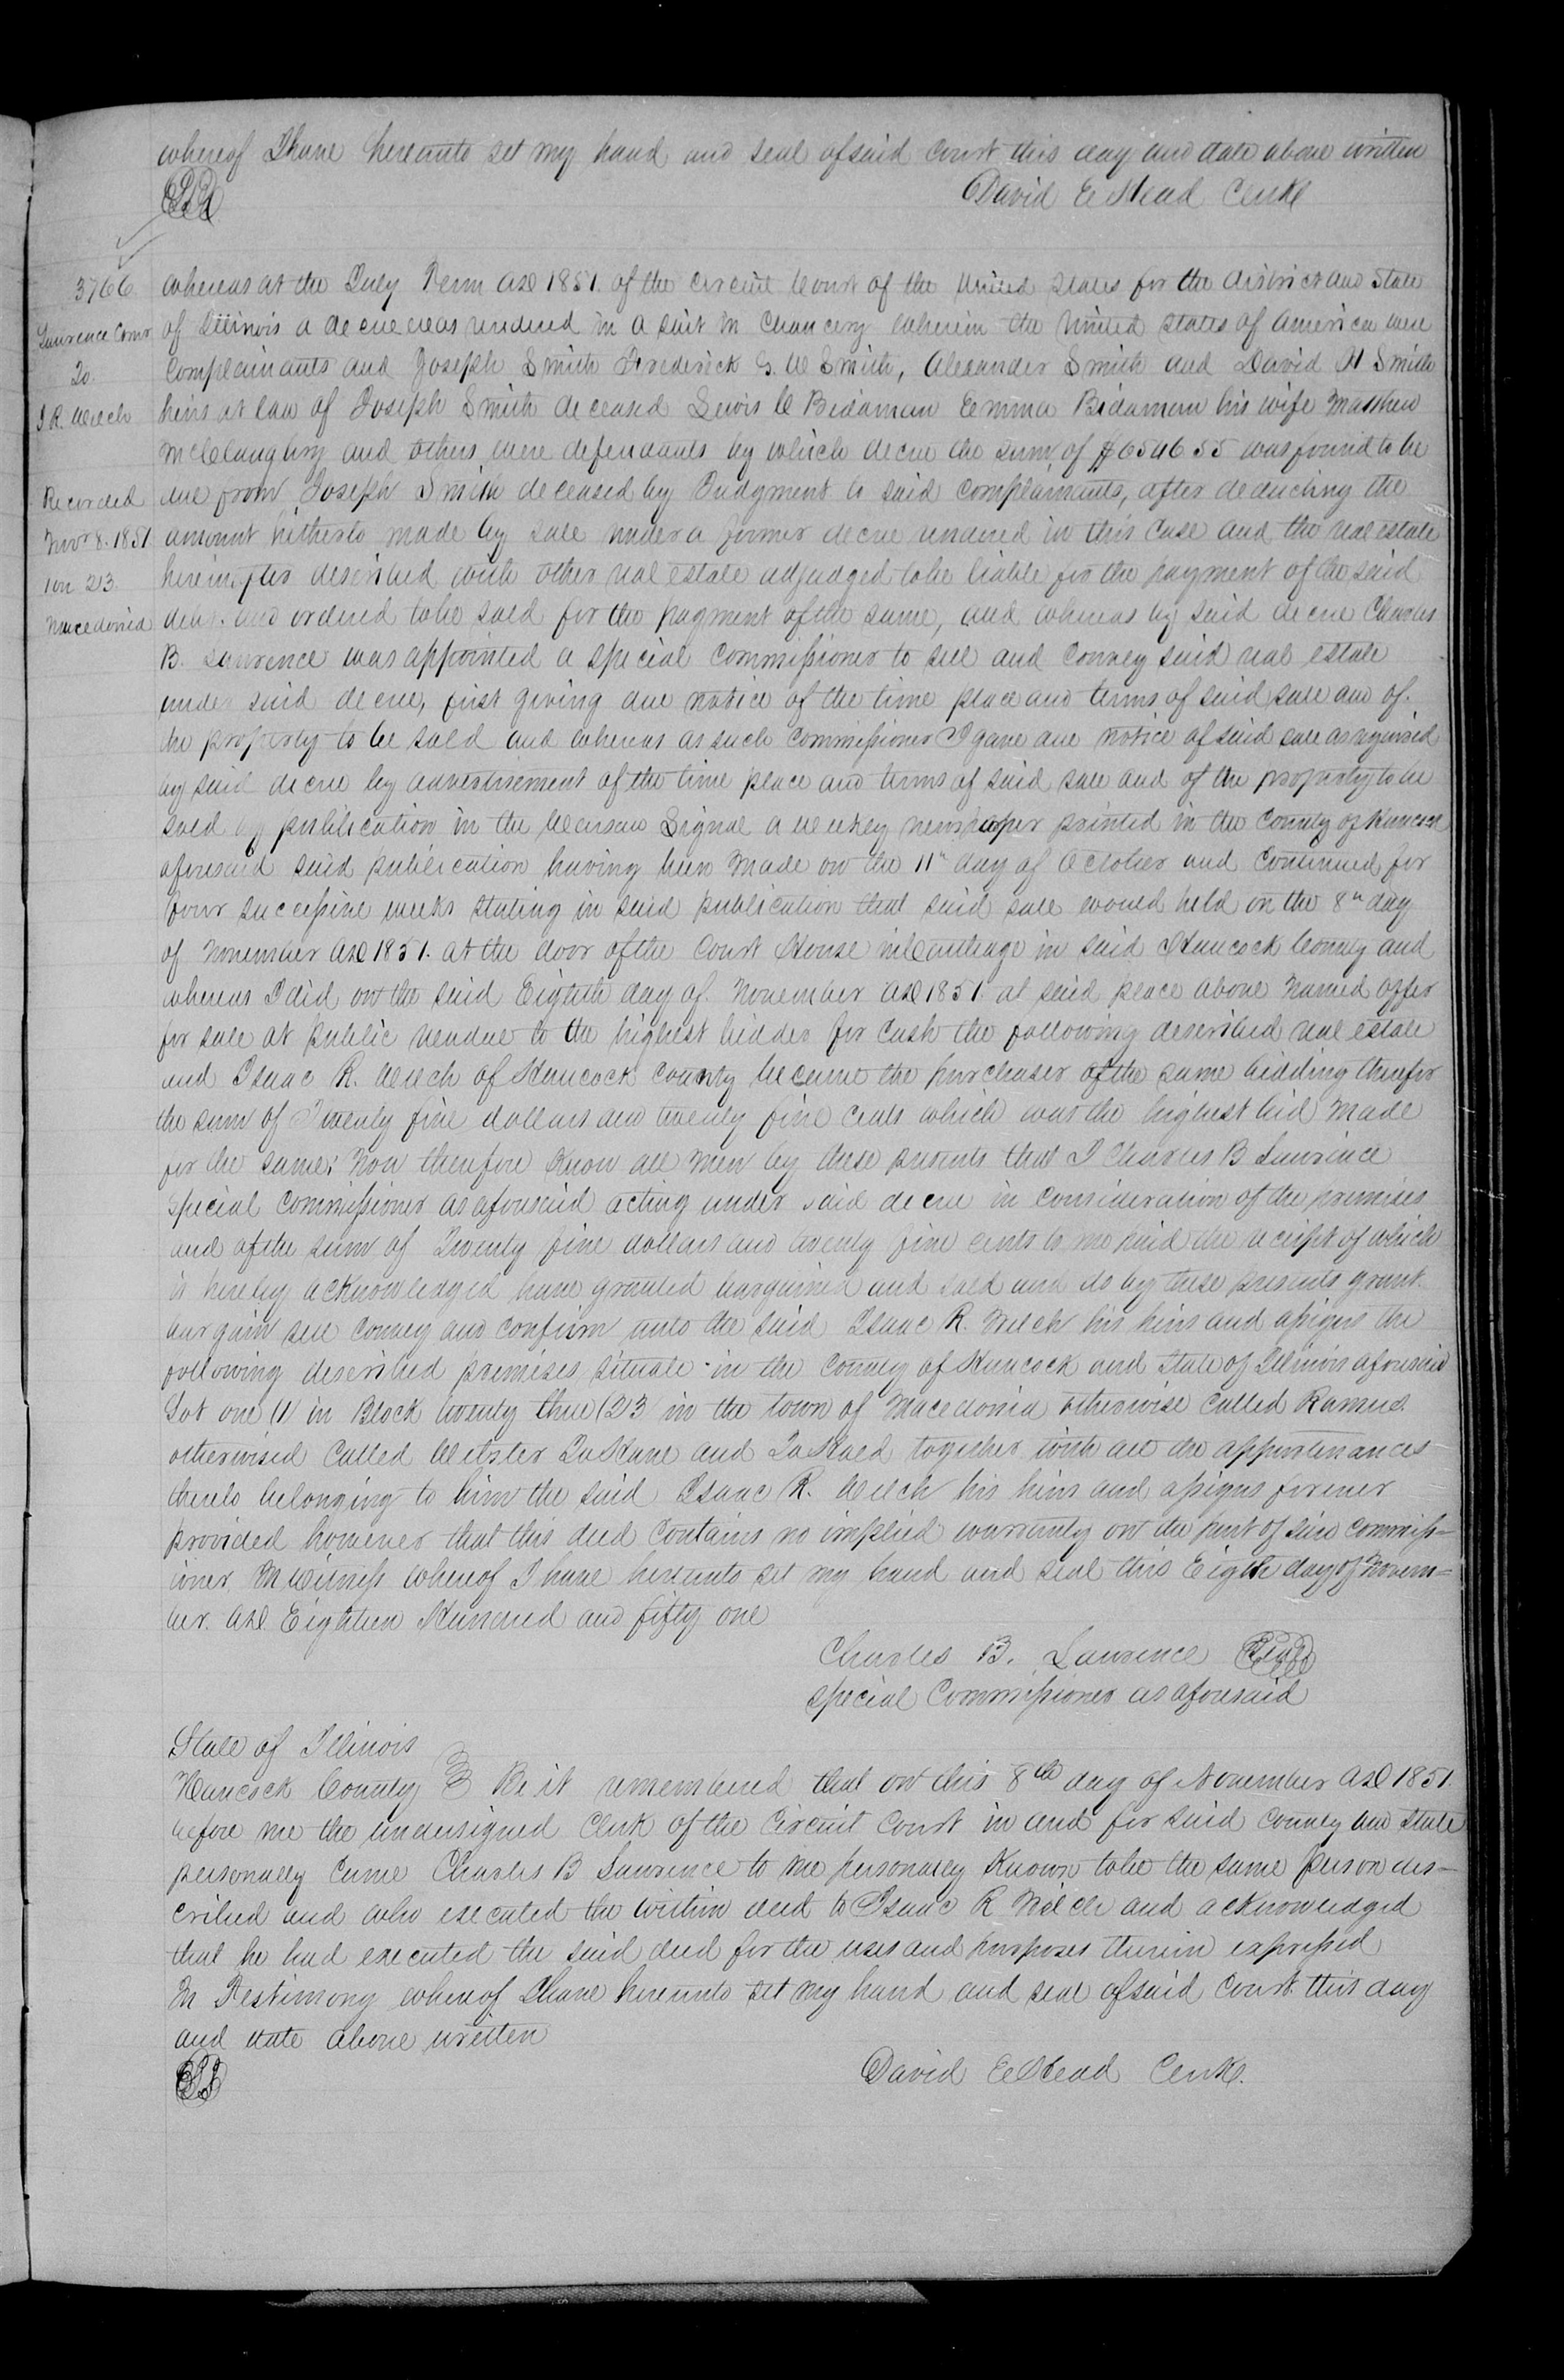 whereof I have hereunto set my hand and seal of said Court this day and date above written
David E Head Clerk
3766
Lawrence Comr
To
I R. Welch
Recorded
Novr 8. 1851
1 on 23
Macedonia
Whereas at the July Term AD 1851. of the circuit Court of the United States for the district and State
of Illinois a decree was rendered in a suit in Chancery wherein the United States of America were
Complainants and Joseph Smith Frederick G. W Smith, Alexander Smith and David H Smith
heirs at law of Joseph Smith deceased Lewis C Bidaman Emma Bidamon his wife Matthew
McClaughry and others were defendants by which decree the sum of $6546 55 was found to be
due from Joseph Smith deceased by Judgment to said Complainants, after deducting the
amount hitherto made by sale under a former decree rendered in this Case and the real estate
hereinafter described with other real estate adjudged to be liable for the payment of the said
debt. and ordered to be sold for the payment of the same, and whereas by said decree Charles
B. Lawrence was appointed a special Commissioner to sell and Convey said real estate
under said decree, first giving due notice of the time place and terms of said sale and of.
the property to be sold and whereas as such Commissioner I gave due notice of said sale as required
by said decree by advertisement of the time place and terms of said sale and of the property to be
sold by publication in the Warsaw Signal a weekly newspaper printed in the County of Hancock
aforesaid said publication having been made on the 11th day of October and Continued for
four successive weeks stating in said publication that said sale would held on the 8th day
of November AD 1851. at the door of the Court House in Carthage in said Hancock County and
whereas I did on the said Eighth day of. November AD 1851. at said place above named offer
for sale at public vendue to the highest bidder for Cash the following described real estate
and Isaac R. Welch of Hancock County became the purchaser of the same bidding therefor
the sum of Twenty five dollars and twenty five cents which was the highest bid made
for the same; Now therefore Know all men by these presents that I Charles B Lawrence
special Commissioner as aforesaid acting under said decree in consideration of the premises
and of the sum of Twenty five dollars and twenty five cents to me paid the receipt of which
is hereby acknowledged have granted bargained and sold and do by these presents grant
bargain sell Convey and confirm unto the said Isaac R. Welch his heirs and assigns the
following described premises situate in the County of Hancock and State of Illinois aforesaid
Lot one (1) in Block twenty three (23 in the town of Macedonia otherwise called Ramus.
otherwised Called Webster To Have and To Hold together with all the appurtenances
thereto belonging to him the said Isaac R. Welch his heirs and assigns forever
provided however that this deed Contains no implied warranty on the part of said commiss=
ioner In witness whereof I have hereunto set my hand and seal this Eighth day of Novem=
ber. AD. Eighteen Hundred and fifty one
Charles B. Lawrence Seal
special Commissioner as aforesaid
State of Illinois
Hancock County Be it remembered that on this 8th day of November AD 1851.
before me the undersigned Clerk of the Circuit Court in and for said County and State
personally Came Charles B Lawrence to me personally Known to be the same person des-
cribed and who executed the within deed to Isaac R Welch and acknowledged
that he had executed the said deed for the uses and purposes therein expressed
In Testimony whereof I have hereunto set my hand and seal of said Court this day
and date above written
David E Head Clerk.